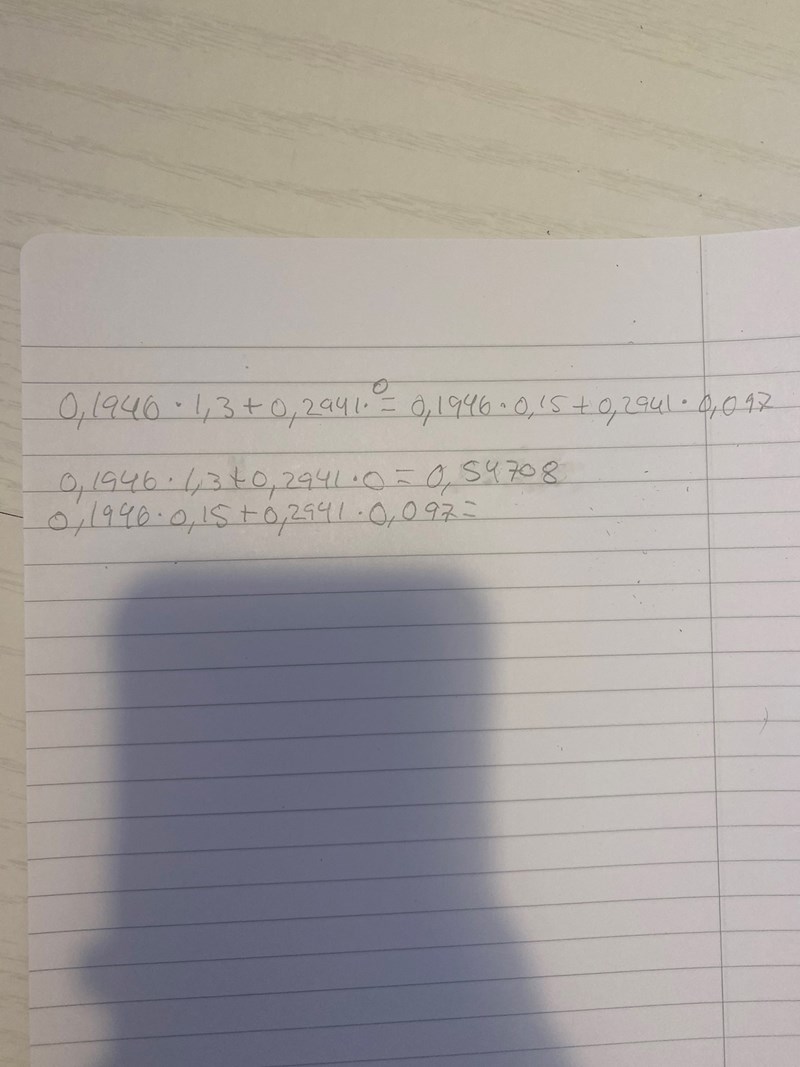 0,1946 · 1,3 + 0,2941 · 0 = 0,1946 · 0,15 + 0,2941 · 0,097
0,1946 · 1,3 + 0,2941 · 0 = 0,54708
0,1946 · 0,15 + 0,2941 · 0,097 =